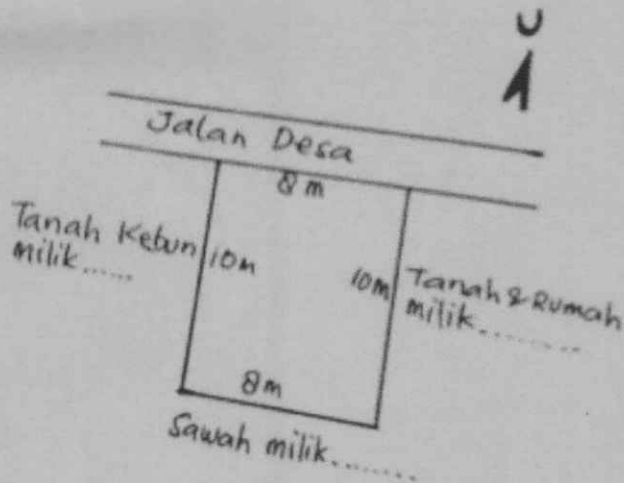 U
Jalan Desa
8 m
Tanah Kebun
milik......
10m
10m
Tanah & Rumah
milik..........
8m
Sawah milik.........